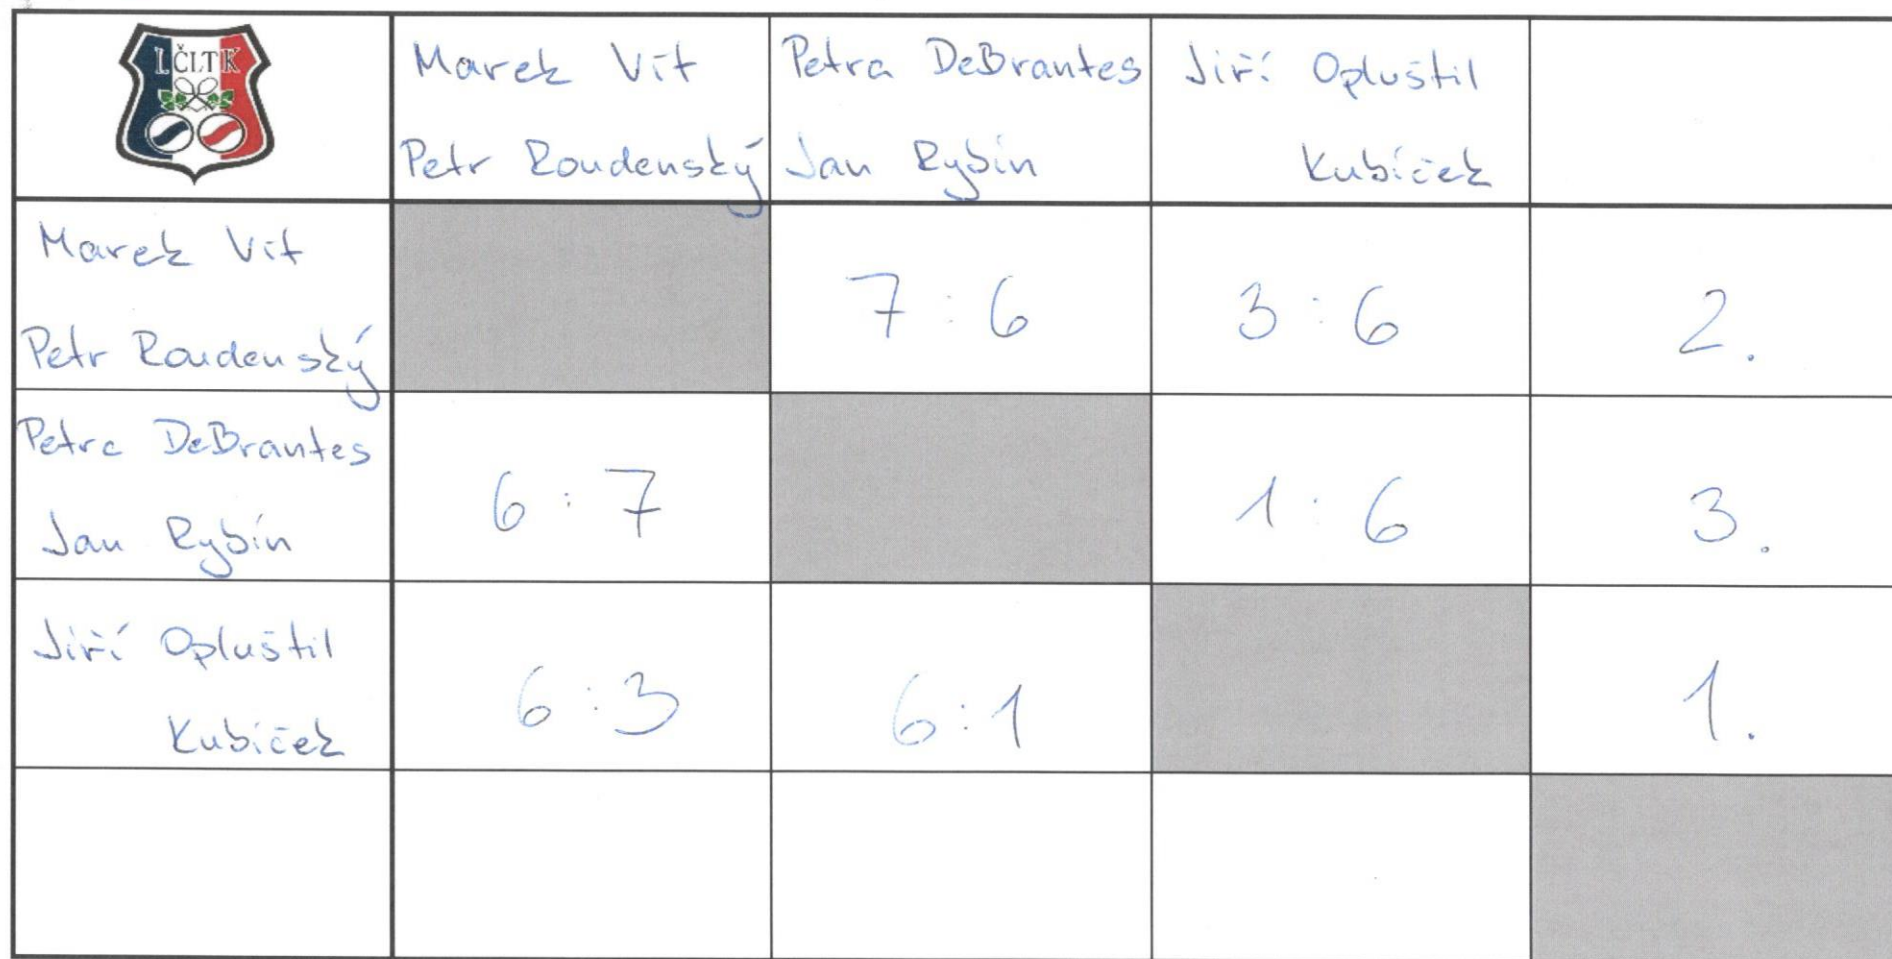 I. ČLTK
Marek Vít
Petr Roudenský
Petra DeBrantes
Jan Rybín
Jiří Opluštil
Kubíček
Marek Vít
Petr Roudenský
7 : 6
3 : 6
2.
Petra DeBrantes
Jan Rybín
6 : 7
1 : 6
3.
Jiří Opluštil
Kubíček
6 : 3
6 : 1
1.